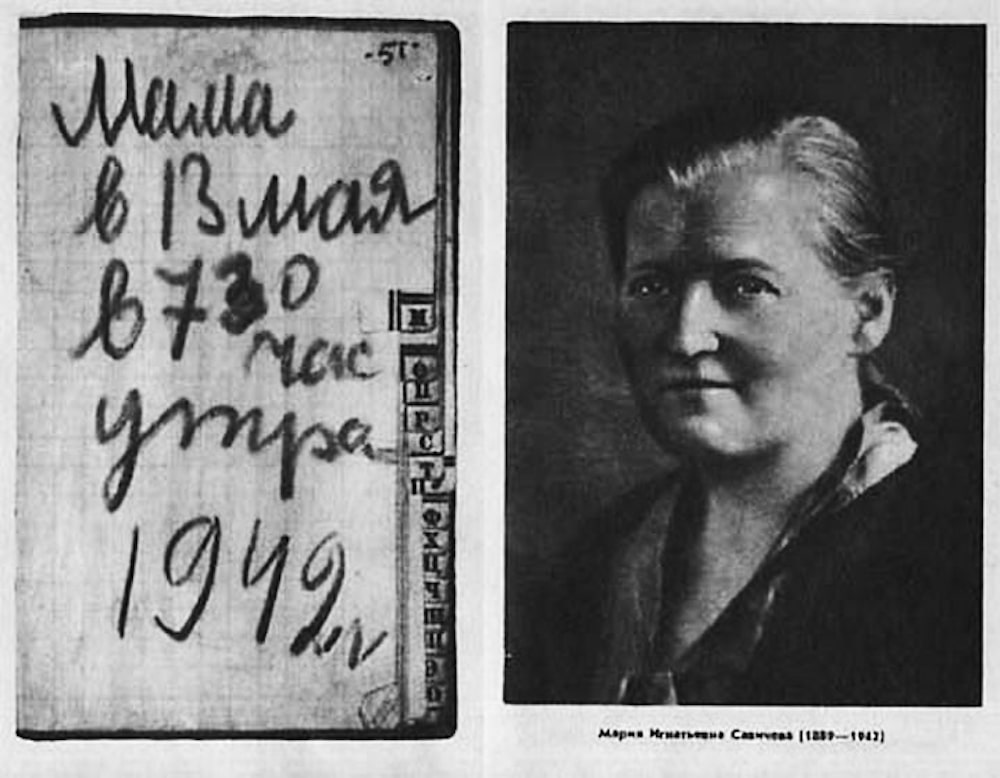 -51-
Мама
в 13 мая
в 730
час
утра
1942 г
М
О
П
Р
С
Т
Мария Игнатьевна Савичева (1889—1942)